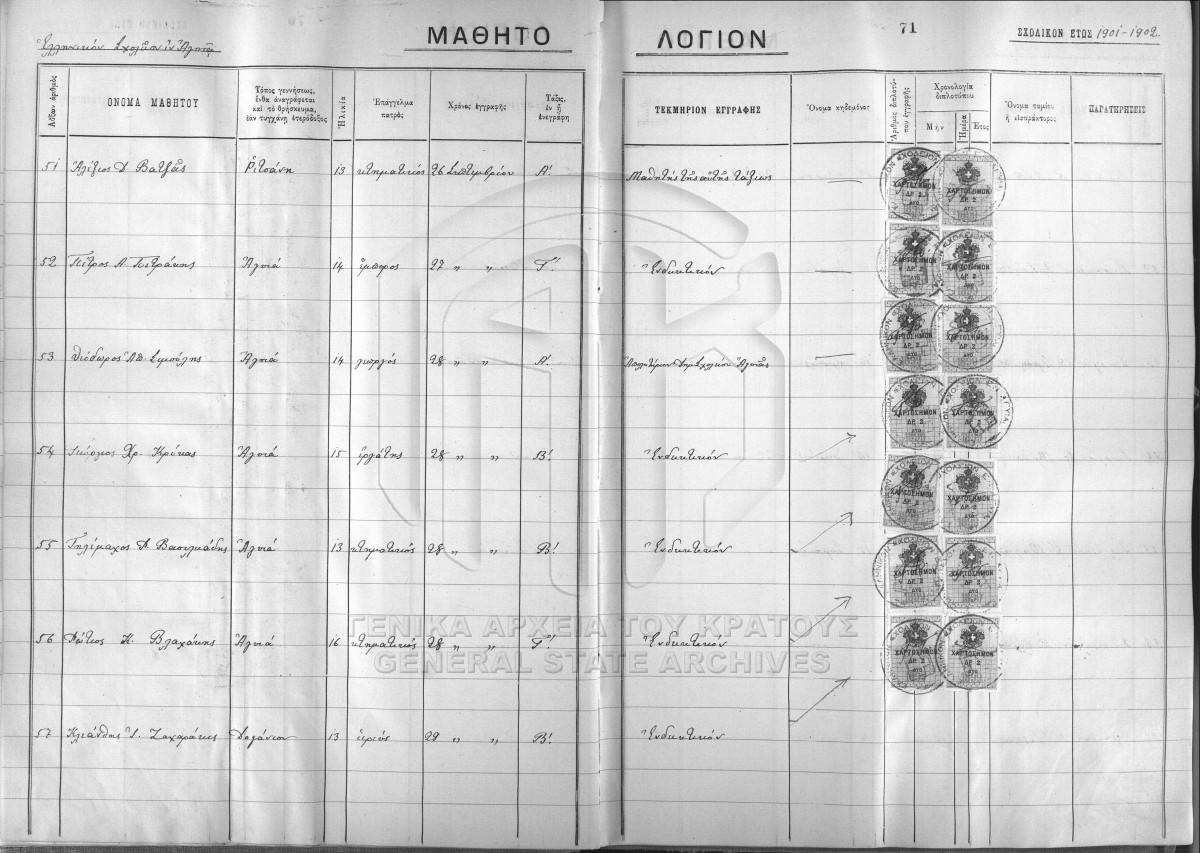 71
Ἑλληνικὸν Σχολεῖον ἐν Ἀγυιᾷ
ΜΑΘΗΤΟ ΛΟΓΙΟΝ
ΣΧΟΛΙΚΟΝ ΕΤΟΣ 1901-1902
Αὔξων ἀριθμὸς
ΟΝΟΜΑ ΜΑΘΗΤΟΥ
Τόπος γεννήσεως,
ἔνθα ἀναγράφεται
καὶ τὸ θρήσκευμα,
ἐὰν τυγχάνῃ ἑτερόδοξος
Ἡλικία
Ἐπάγγελμα
πατρὸς
Χρόνος ἐγγραφῆς
Τάξις,
ἐν ᾗ
ἐνεγράφη
ΤΕΚΜΗΡΙΟΝ ΕΓΓΡΑΦΗΣ
Ὄνομα κηδεμόνος
Ἀριθμὸς διπλοτύ-
που ἐγγραφῆς
Χρονολογία
διπλοτύπου
Μὴν
Ἡμέρα
Ἔτος
Ὄνομα ταμίου
ἢ εἰσπράκτορος
ΠΑΡΑΤΗΡΗΣΕΙΣ
51 Ἀλέξιος Δ Βατζιᾶς Ῥέτσανη 13 κτηματικός 26 Σεπτεμβρίου Α! Μαθητής τῆς αὐτῆς τάξεως
52 Πέτρος Α Πετράκης Ἀγυιά 14 ἔμπορος 27 〃 〃 Γ'! Ἐνδεικτικόν
53 Θεόδωρος Ἀπ. Ἀγυιά 14 γεωργός 28 〃 〃 Α! Ἀπολυτήριον Δημ. Σχολείου Ἀγυιᾶς
54 Γεώργιος Χρ. Ἀγυιά 15 ἐργάτης 28 〃 〃 Β! Ἐνδεικτικόν
55 Τηλέμαχος Δ Βασιλειάδης Ἀγυιά 13 κτηματικός 28 〃 〃 Β! Ἐνδεικτικόν
56 Φώτιος Κ. Βλαχάκης Ἀγυιά 16 κτηματικός 28 〃 〃 Γ'! Ἐνδεικτικόν
57 Κλεάνθης Ἰ. Ζαχαράκις 13 ἱερεύς 29 〃 〃 Β! Ἐνδεικτικόν
ΧΑΡΤΟΣΗΜΟΝ
ΔΡ. 2
ΔΥΟ
ΓΕΝΙΚΑ ΑΡΧΕΙΑ ΤΟΥ ΚΡΑΤΟΥΣ
GENERAL STATE ARCHIVES